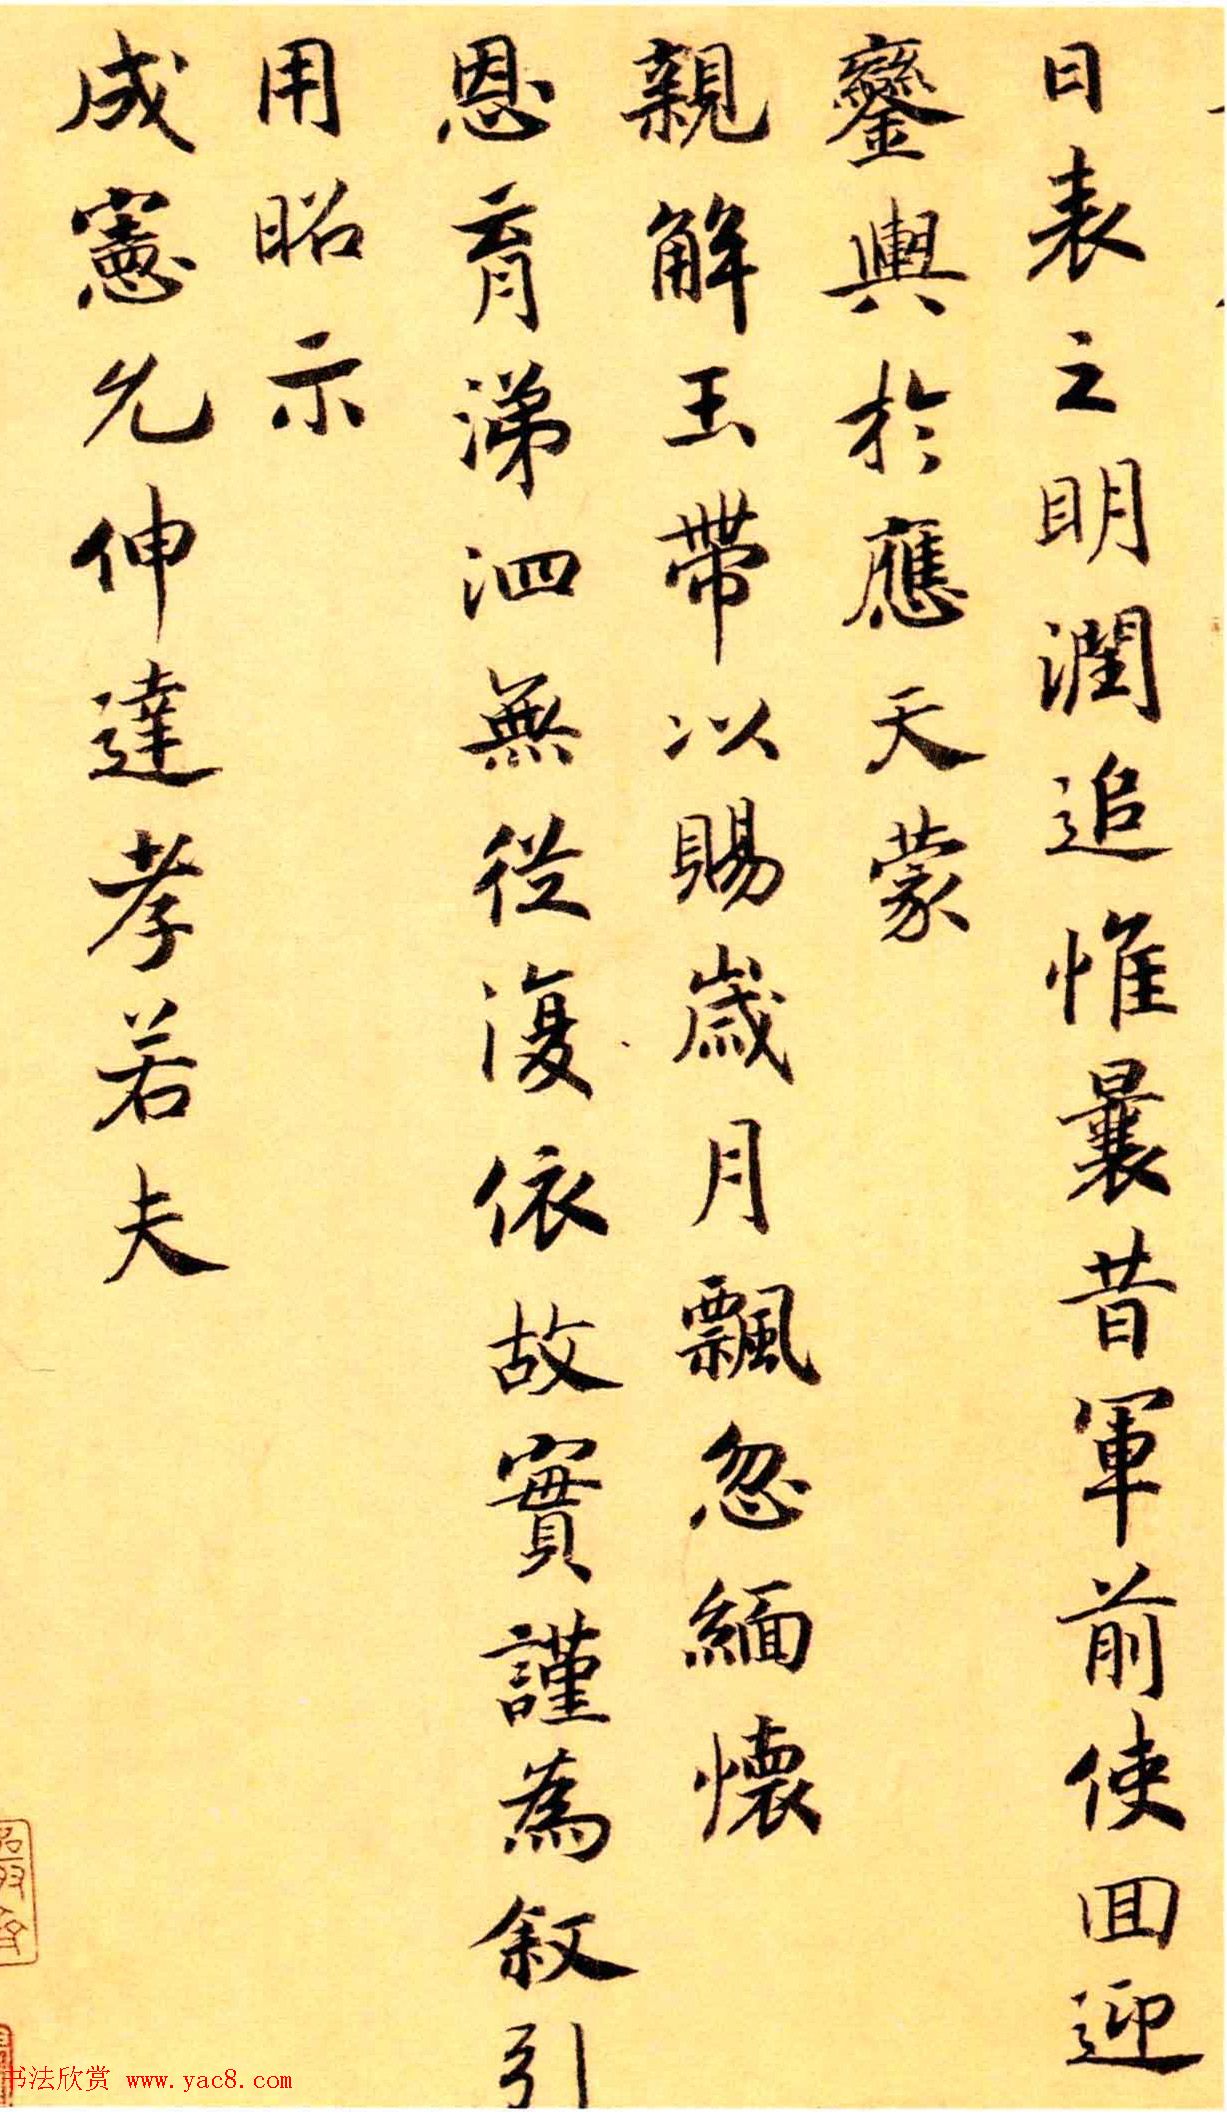 日表之明潤追惟曩昔軍前使回迎
鑾輿於應天蒙
親解玉帶以賜歲月飄忽緬懷
恩育涕泗無從復依故實謹為叙引
用昭示
成憲允伸達孝若夫
书法欣赏 www.yac8.com